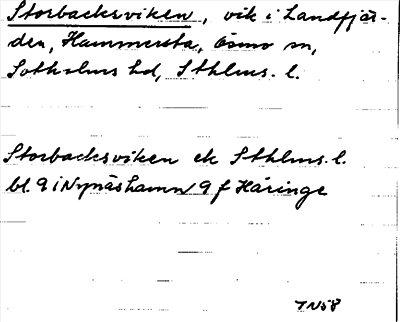 Storbacksviken, vik i Landfjär-
den, Hammersta, Ösmo sn,
Sotholms hd, Sthlms. l.
Storbacksviken ek Sthlms. l.
bl. 9 i Nynäshamn 9 f Häringe
TN58